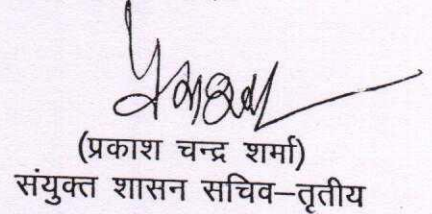 (प्रकाश चन्द्र शर्मा)
संयुक्त शासन सचिव–तृतीय